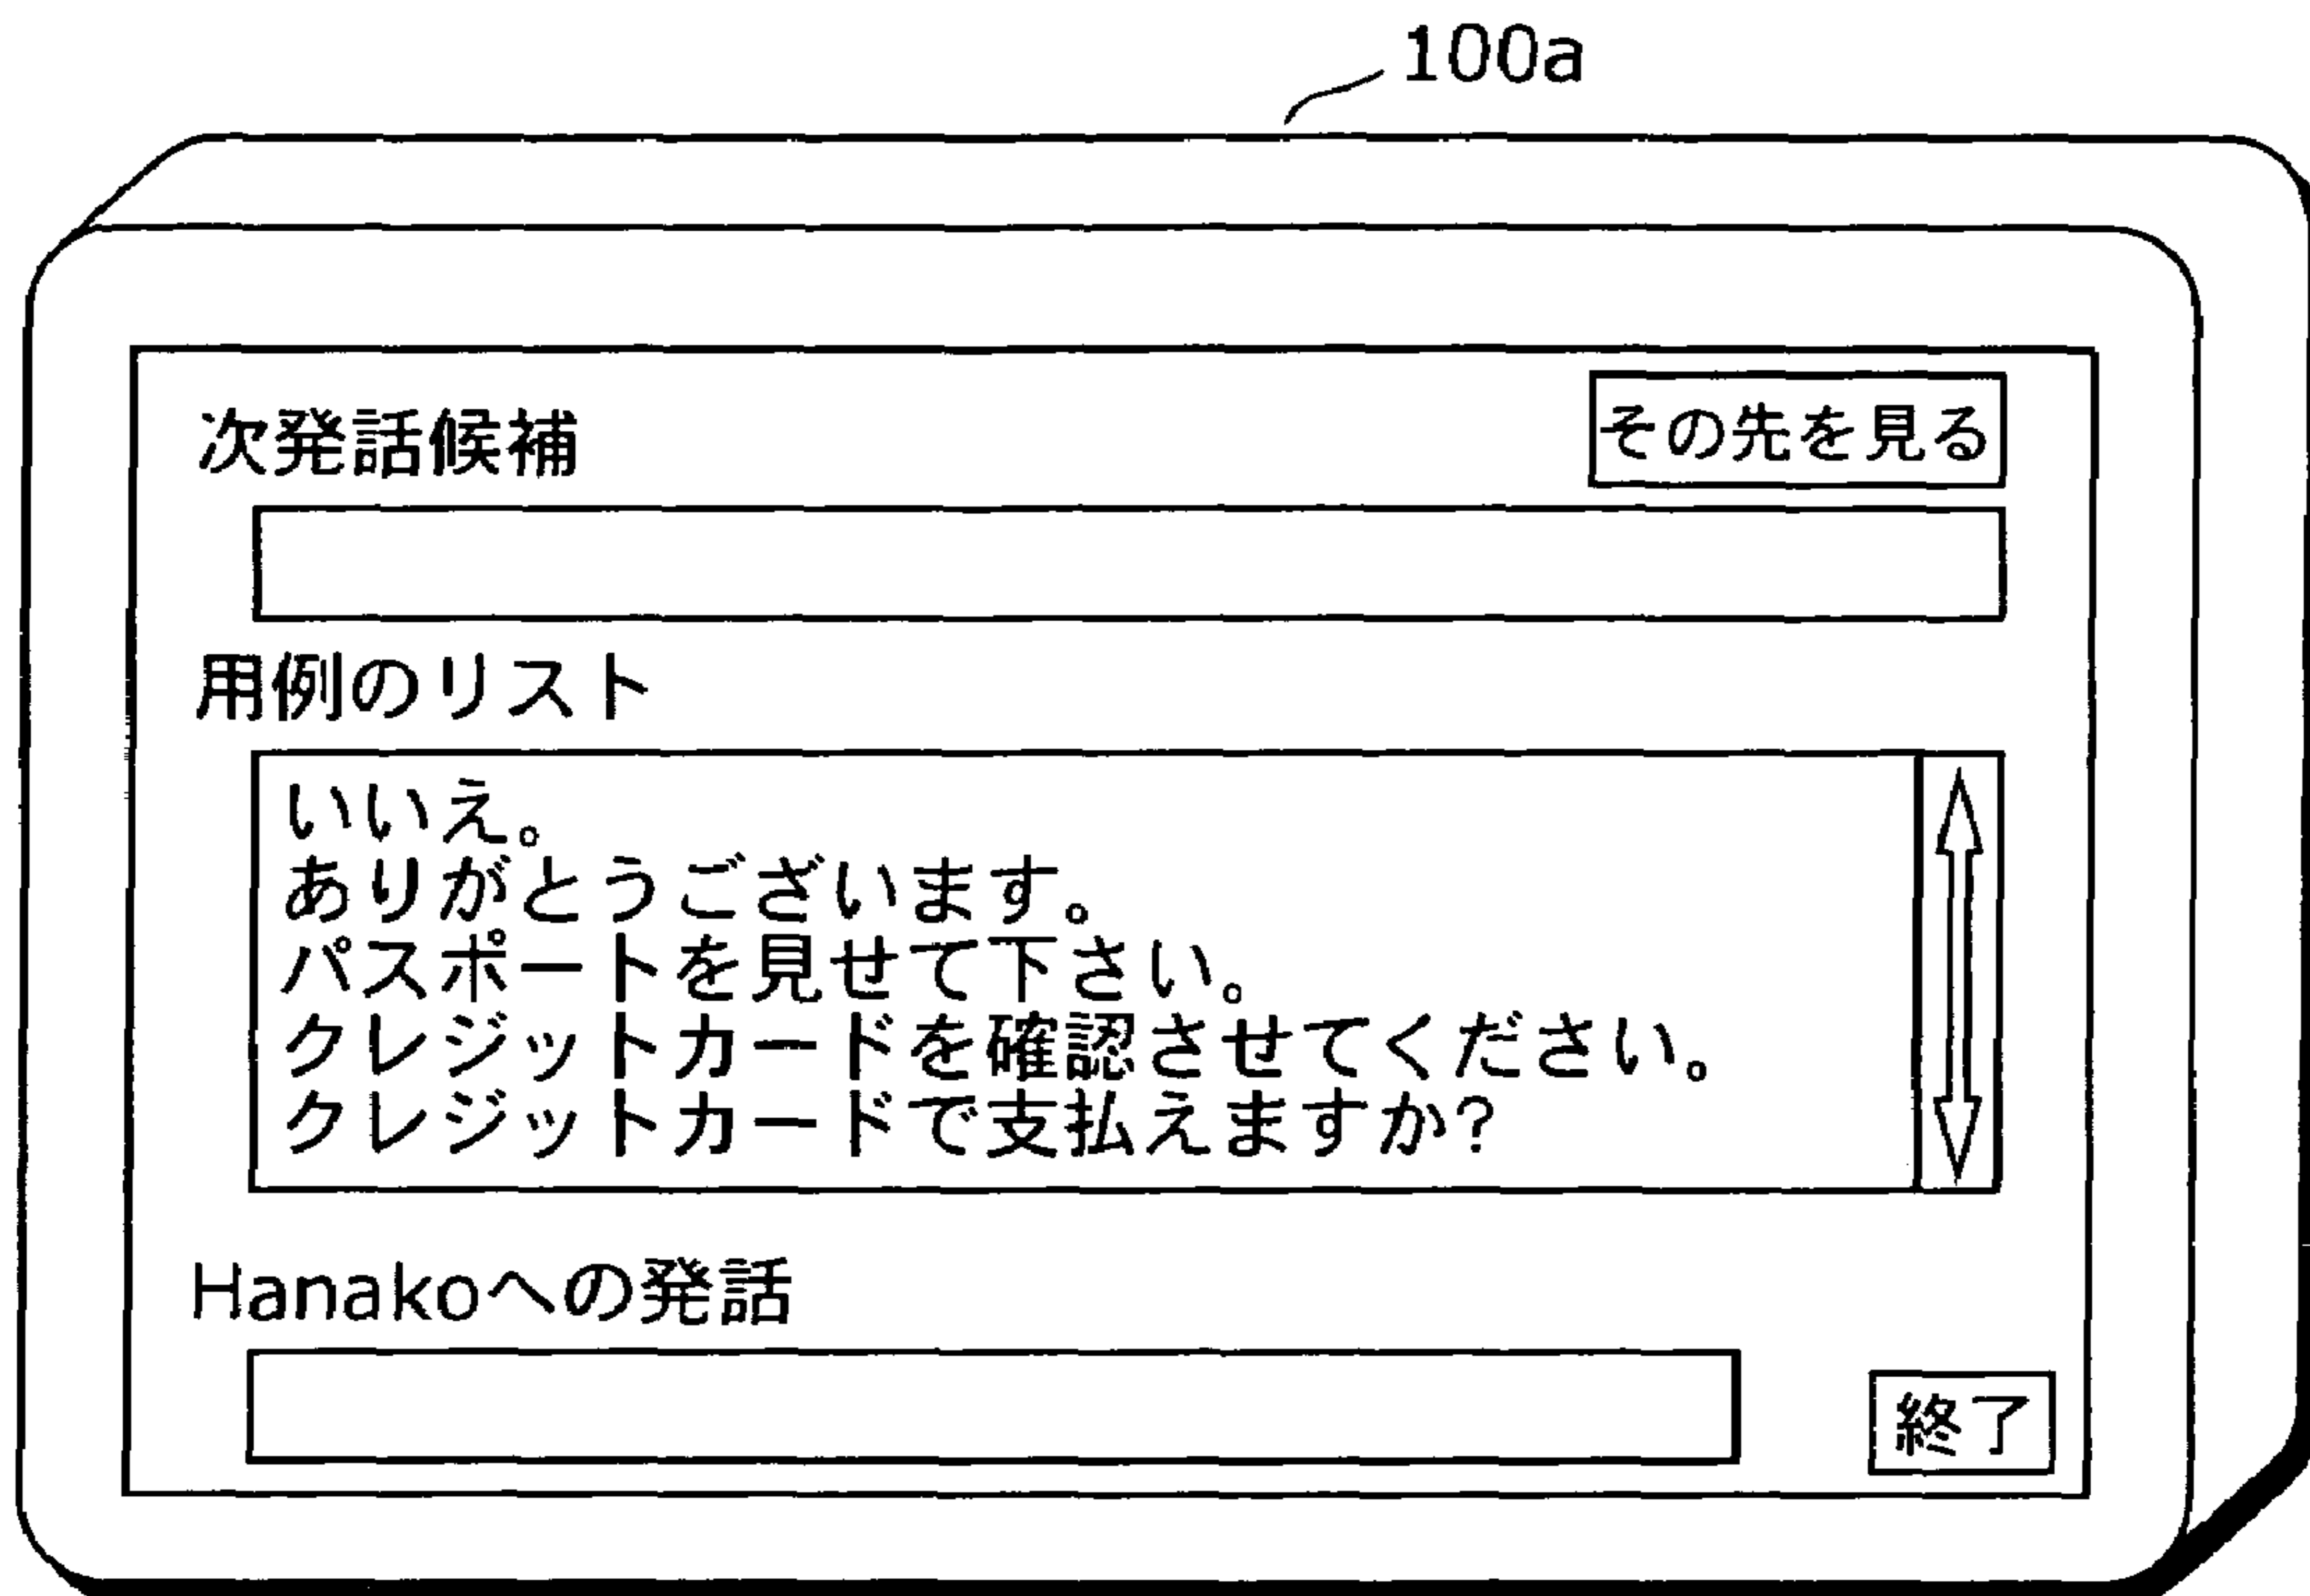 100a
次発話候補
その先を見る
用例のリスト
いいえ。
ありがとうございます。
パスポートを見せて下さい。
クレジットカードを確認させてください。
クレジットカードで支払えますか?
Hanakoへの発話
終了